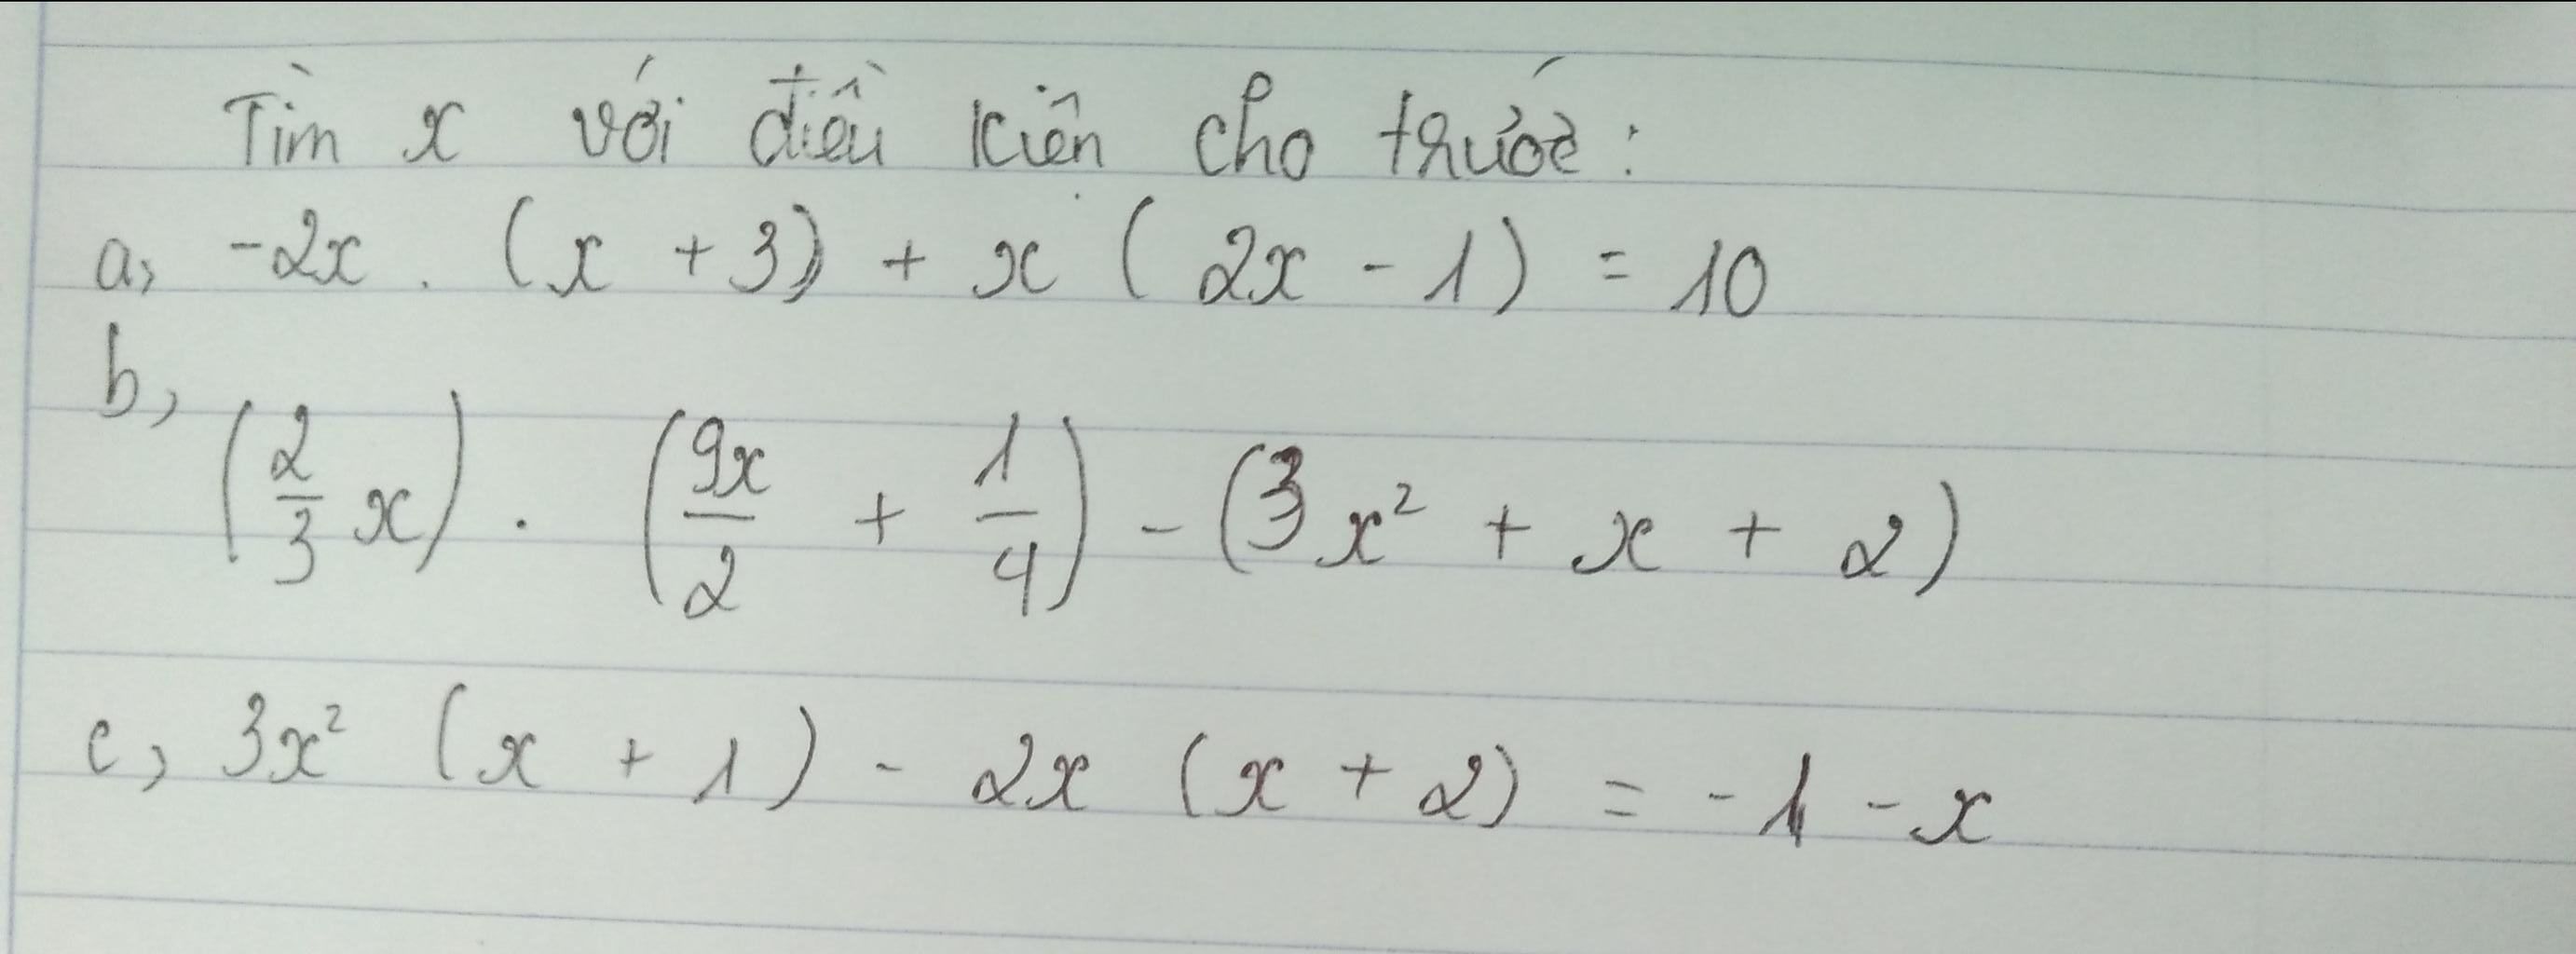 Tìm x với điều kiện cho trước:
a, -2x . (x + 3) + x ( 2x - 1) = 10
b,
(2/3 x) . (9x/2 + 1/4) - (3x² + x + 2)
c, 3x² (x + 1) - 2x (x + 2) = -1 - x